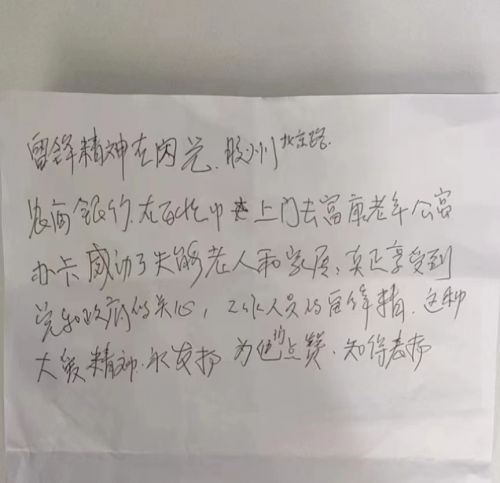 雷锋精神在闪光.胶州北京路
农商银行.在百忙中 上门去富康老年公寓
办卡感动了失能老人和家属,真正享受到
党和政府的关心,工作人员的雷锋精.这种
大爱精神.永发扬 为他们点赞.知得表扬